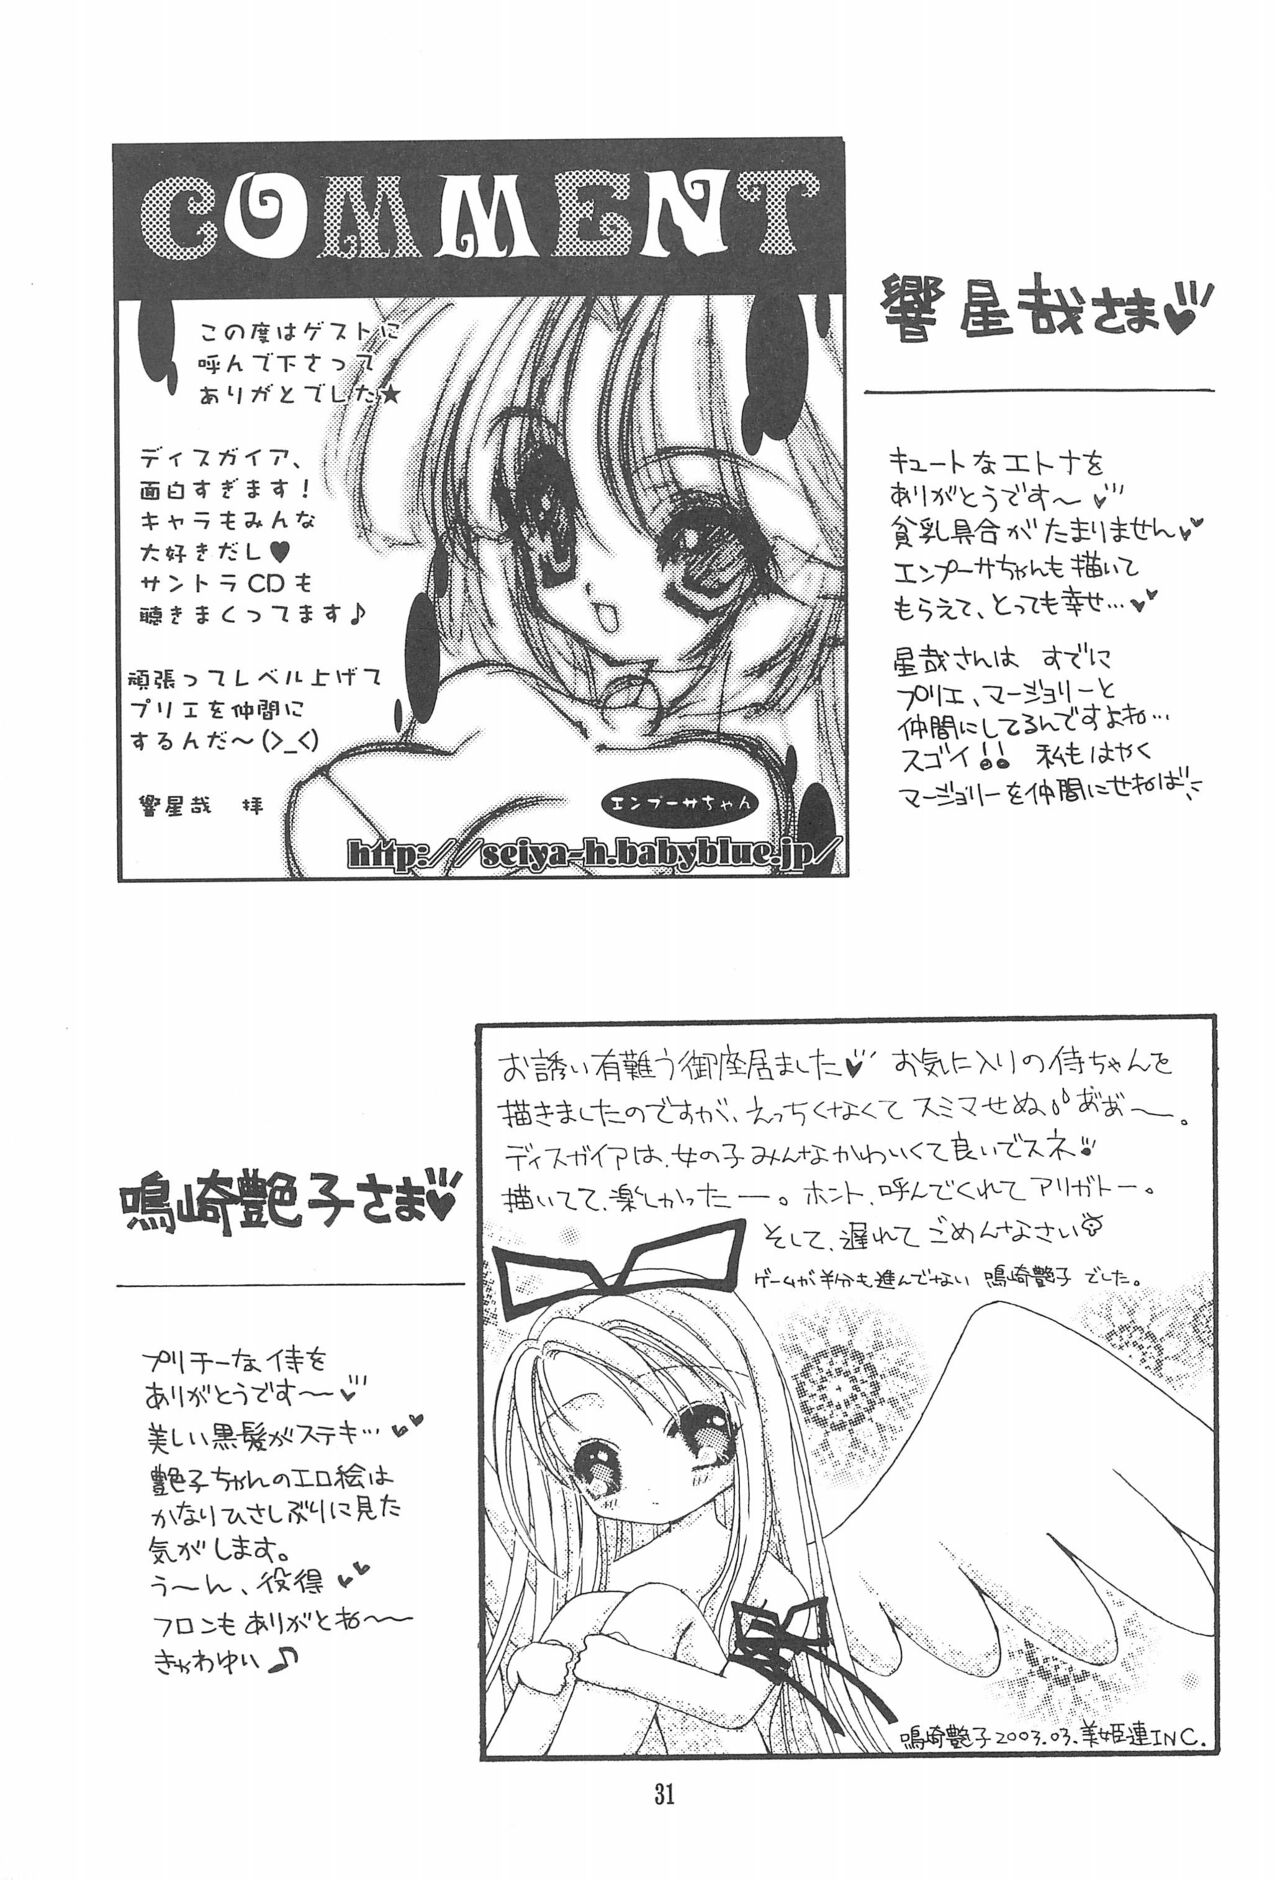 COMMENT
この度はゲストに
呼んで下さって
ありがとでした★
ディスガイア、
面白すぎます!
キャラもみんな
大好きだし♥
サントラCDも
聴きまくってます♪
頑張ってレベル上げて
プリエを仲間に
するんだ〜(>_<)
響星哉 拝
エンプーサちゃん
http://seiya-h.babyblue.jp/
響星哉さま♥
キュートなエトナを
ありがとうです〜♥
貧乳具合がたまりません♥
エンプーサちゃんも描いて
もらえて、とっても幸せ…♥
星哉さんは すでに
プリエ、マージョリーと
仲間にしてるんですよね…
スゴイ!! 私もはやく
マージョリーを仲間にせねば
お誘い有難う御座居ました♥ お気に入りの侍ちゃんを
描きましたのですが、えっちくなくてスミマせぬ、あぁ〜。
ディスガイアは、女の子みんなかわいくて良いでスネ
描いてて、楽しかったー。ホント、呼んでくれてアリガトー。
そして、遅れてごめんなさい
ゲームが半分も進んでない 鳴崎艶子でした。
鳴崎艶子さま♥
プリチーな侍を
ありがとうです〜♥
美しい黒髪がステキ…♥
艶子ちゃんのエロ絵は
かなりひさしぶりに見た
気がします。
う〜ん、役得♥
フロンもありがとね〜
きゃわゆい♪
鳴崎艶子2003.03.美姫連INC.
31